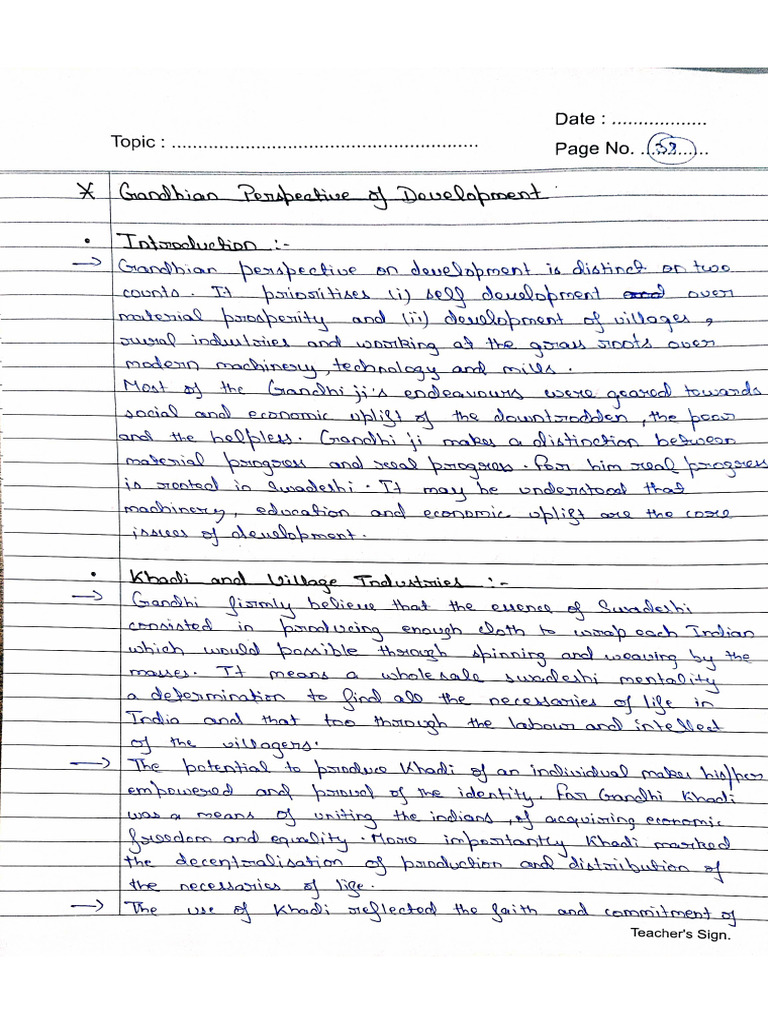 Date : ..................
Topic : ..........................................................
Page No. .............
* Gandhian Perspective of Development :
• Introduction :-
→ Gandhian perspective on development is distinct on two
counts. It prioritises (i) self development and over
material prosperity and (ii) development of villages,
rural industries and working at the grass roots over
modern machinery, technology and mills.
Most of the Gandhi ji's endeavours were geared towards
social and economic uplift of the downtrodden, the poor
and the helpless. Gandhi ji makes a distinction between
material progress and real progress. For him real progress
is rooted in Swadeshi. It may be understood that
machinery, education and economic uplift are the core
issues of development.
• Khadi and Village Industries :-
→ Gandhi firmly believe that the essence of Swadeshi
consisted in producing enough cloth to wrap each Indian
which would possible through spinning and weaving by the
masses. It means a wholesale swadeshi mentality
a determination to find all the necessaries of life in
India and that too through the labour and intellect
of the villagers.
→ The potential to produce Khadi of an individual makes his/her
empowered and proud of the identity. For Gandhi Khadi
was a means of uniting the indians, of acquiring economic
freedom and equality. More importantly Khadi marked
the decentralisation of production and distribution of
the necessaries of life.
→ The use of Khadi reflected the faith and commitment of
Teacher's Sign.